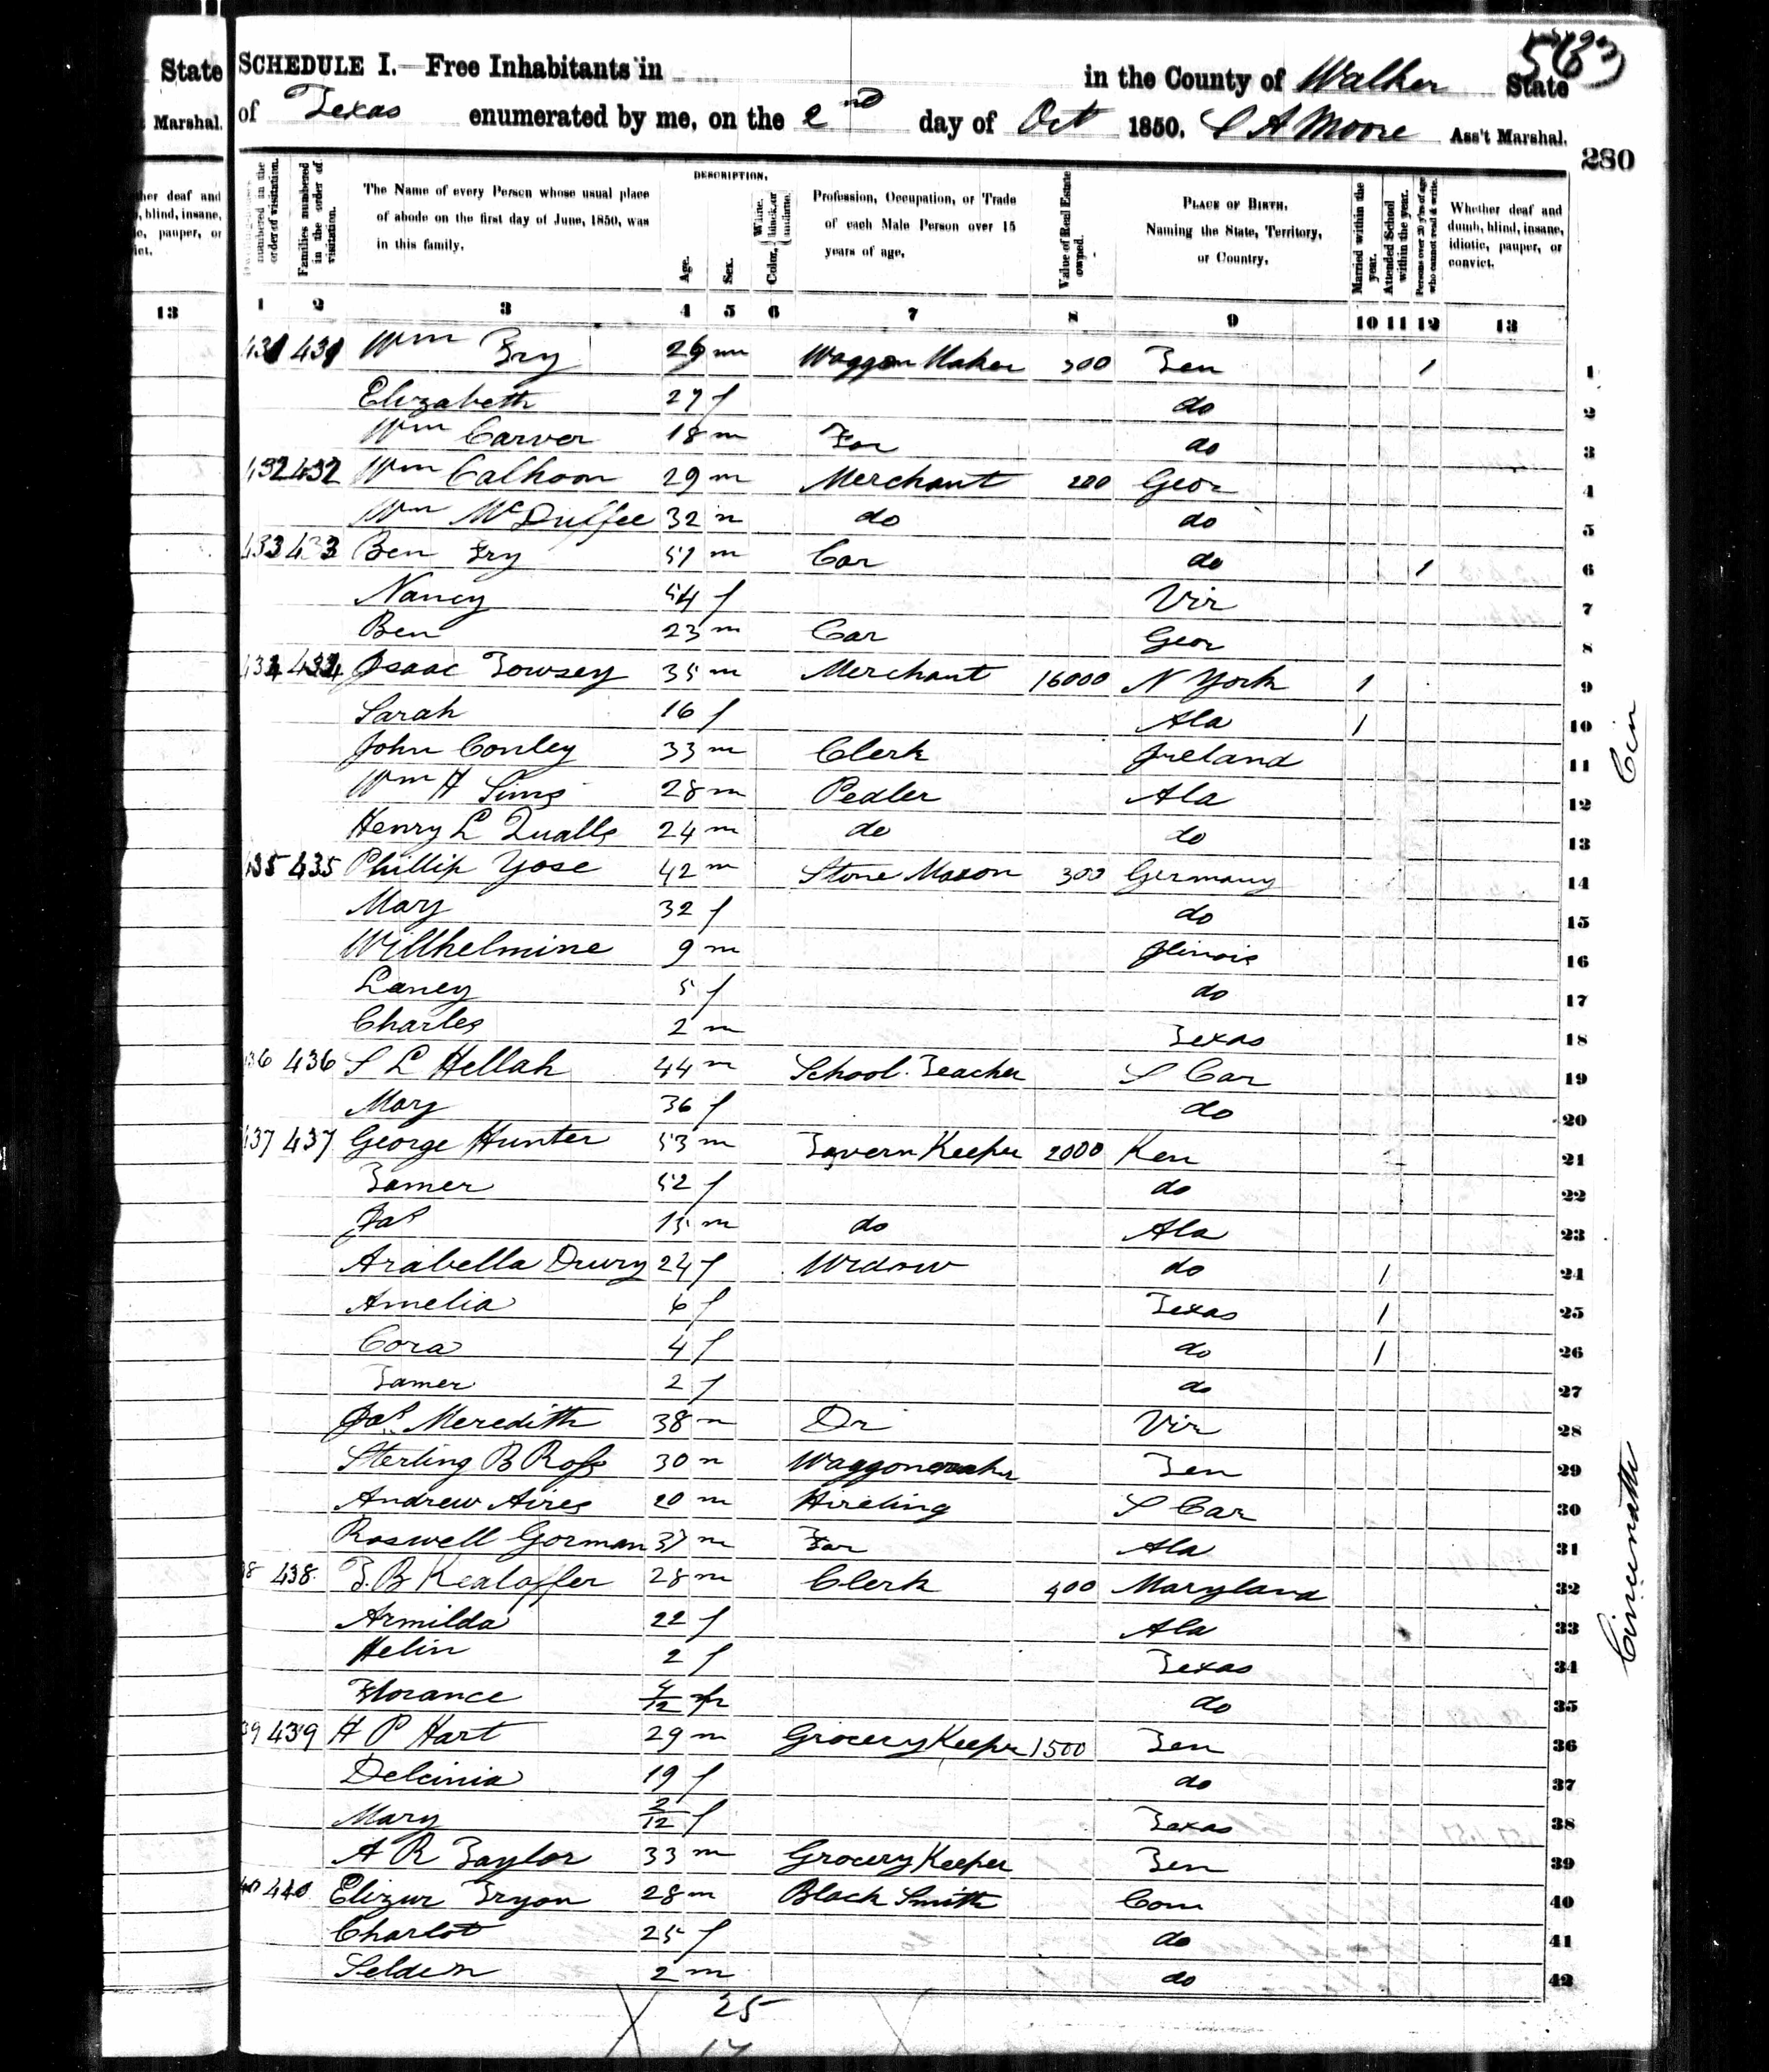 563
State SCHEDULE I.—Free Inhabitants in in the County of Walker State
Marshal. of Texas enumerated by me, on the 2nd day of Oct 1850. S A Moore Ass't Marshal.
280
DESCRIPTION.
numbered in the order of visitation.
Families numbered in the order of visitation.
The Name of every Person whose usual place of abode on the first day of June, 1850, was in this family.
Age.
Sex.
Color, White, black or mulatto.
Profession, Occupation, or Trade of each Male Person over 15 years of age.
Value of Real Estate owned.
PLACE OF BIRTH. Naming the State, Territory, or Country.
Married within the year.
Attended School within the year.
Persons over 20 y'rs of age who cannot read & write.
Whether deaf and dumb, blind, insane, idiotic, pauper, or convict.
ther deaf and
, blind, insane,
c, pauper, or
ict.
13 1 2 3 4 5 6 7 8 9 10 11 12 13
431 431 Wm Fry 26 m Waggon Maker 300 Ten 1 1
Elizabeth 27 f do 2
Wm Carver 18 m Far do 3
432 432 Wm Calhoon 29 m Merchant 200 Geor 4
Wm McDuffee 32 m do do 5
433 433 Ben Fry 57 m Car do 1 6
Nancy 54 f Vir 7
Ben 23 m Car Geor 8
434 434 Isaac Towsey 35 m Merchant 16000 N York 1 9
Sarah 16 f Ala 1 10
John Conley 33 m Clerk Ireland 11
Wm H Sims 28 m Pedler Ala 12
Henry L Qualls 24 m do do 13
435 435 Phillip Yose 42 m Stone Mason 300 Germany 14
Mary 32 f do 15
Willhelmine 9 m Ilinois 16
Laney 5 f do 17
Charles 2 m Texas 18
36 436 S L Hellah 44 m School Teacher S Car 19
Mary 36 f do 20
437 437 George Hunter 53 m Tavern Keeper 2000 Ken 21
Tamer 52 f do 22
Jas 15 m do Ala 23
Arabella Drury 24 f Widow do 1 24
Amelia 6 f Texas 1 25
Cora 4 f do 1 26
Tamer 2 f do 27
Jas Meredith 38 m Dr Vir 28
Sterling B Ross 30 m Waggonmaker Ten 29
Andrew Aires 20 m Hireling S Car 30
Roswell Gorman 37 m Far Ala 31
38 438 T. B Kealoffer 28 m Clerk 400 Maryland 32
Armilda 22 f Ala 33
Helin 2 f Texas 34
Florance 4/12 f do 35
39 439 H P Hart 29 m Grocery Keeper 1500 Ten 36
Delcinia 19 f do 37
Mary 2/12 f Texas 38
A R Taylor 33 m Grocery Keeper Ten 39
440 440 Elizur Tryon 28 m Black Smith Con 40
Charlot 25 f do 41
Selden 2 m do 42
25
17
Cin
Cincinnatti